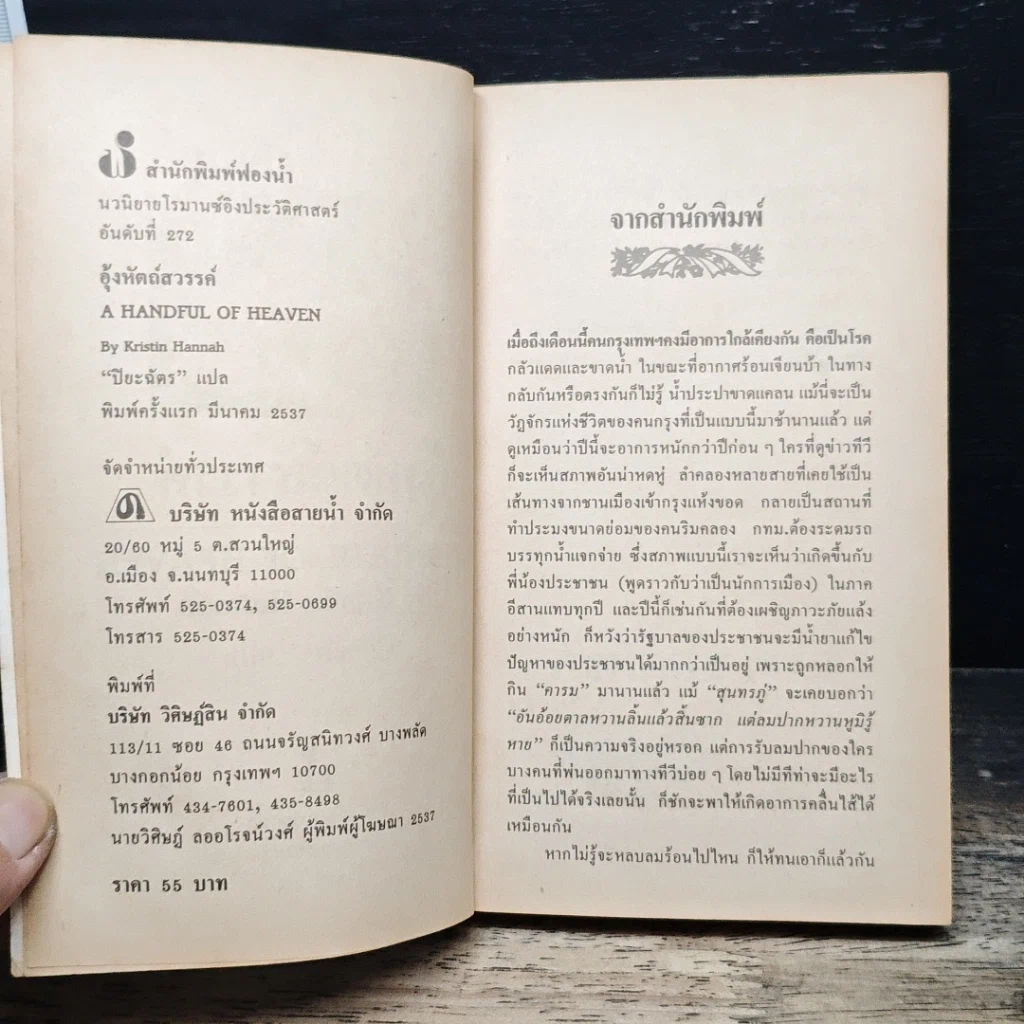 สำนักพิมพ์ฟองน้ำ
นวนิยายโรมานซ์อิงประวัติศาสตร์
อันดับที่ 272
อุ้งหัตถ์สวรรค์
A HANDFUL OF HEAVEN
By Kristin Hannah
“ปิยะฉัตร” แปล
พิมพ์ครั้งแรก มีนาคม 2537
จัดจำหน่ายทั่วประเทศ
บริษัท หนังสือสายน้ำ จำกัด
20/60 หมู่ 5 ต.สวนใหญ่
อ.เมือง จ.นนทบุรี 11000
โทรศัพท์ 525-0374, 525-0699
โทรสาร 525-0374
พิมพ์ที่
บริษัท วิศิษฎ์สิน จำกัด
113/11 ซอย 46 ถนนจรัญสนิทวงศ์ บางพลัด
บางกอกน้อย กรุงเทพฯ 10700
โทรศัพท์ 434-7601, 435-8498
นายวิศิษฎ์ ลออโรจน์วงศ์ ผู้พิมพ์ผู้โฆษณา 2537
ราคา 55 บาท
จากสำนักพิมพ์
เมื่อถึงเดือนนี้คนกรุงเทพฯคงมีอาการใกล้เคียงกัน คือเป็นโรค
กลัวแดดและขาดน้ำ ในขณะที่อากาศร้อนเจียนบ้า ในทาง
กลับกันหรือตรงกันก็ไม่รู้ น้ำประปาขาดแคลน แม้นี่จะเป็น
วัฏจักรแห่งชีวิตของคนกรุงที่เป็นแบบนี้มาช้านานแล้ว แต่
ดูเหมือนว่าปีนี้จะอาการหนักกว่าปีก่อน ๆ ใครที่ดูข่าวทีวี
ก็จะเห็นสภาพอันน่าหดหู่ ลำคลองหลายสายที่เคยใช้เป็น
เส้นทางจากชานเมืองเข้ากรุงแห้งขอด กลายเป็นสถานที่
ทำประมงขนาดย่อมของคนริมคลอง กทม.ต้องระดมรถ
บรรทุกน้ำแจกจ่าย ซึ่งสภาพแบบนี้เราจะเห็นว่าเกิดขึ้นกับ
พี่น้องประชาชน (พูดราวกับว่าเป็นนักการเมือง) ในภาค
อีสานแทบทุกปี และปีนี้ก็เช่นกันที่ต้องเผชิญภาวะภัยแล้ง
อย่างหนัก ก็หวังว่ารัฐบาลของประชาชนจะมีน้ำยาแก้ไข
ปัญหาของประชาชนได้มากกว่าเป็นอยู่ เพราะถูกหลอกให้
กิน “คารม” มานานแล้ว แม้ “สุนทรภู่” จะเคยบอกว่า
“อันอ้อยตาลหวานลิ้นแล้วสิ้นซาก แต่ลมปากหวานหูมิรู้
หาย” ก็เป็นความจริงอยู่หรอก แต่การรับลมปากของใคร
บางคนที่พ่นออกมาทางทีวีบ่อย ๆ โดยไม่มีทีท่าจะมีอะไร
ที่เป็นไปได้จริงเลยนั้น ก็ชักจะพาให้เกิดอาการคลื่นไส้ได้
เหมือนกัน
หากไม่รู้จะหลบลมร้อนไปไหน ก็ให้ทนเอาก็แล้วกัน